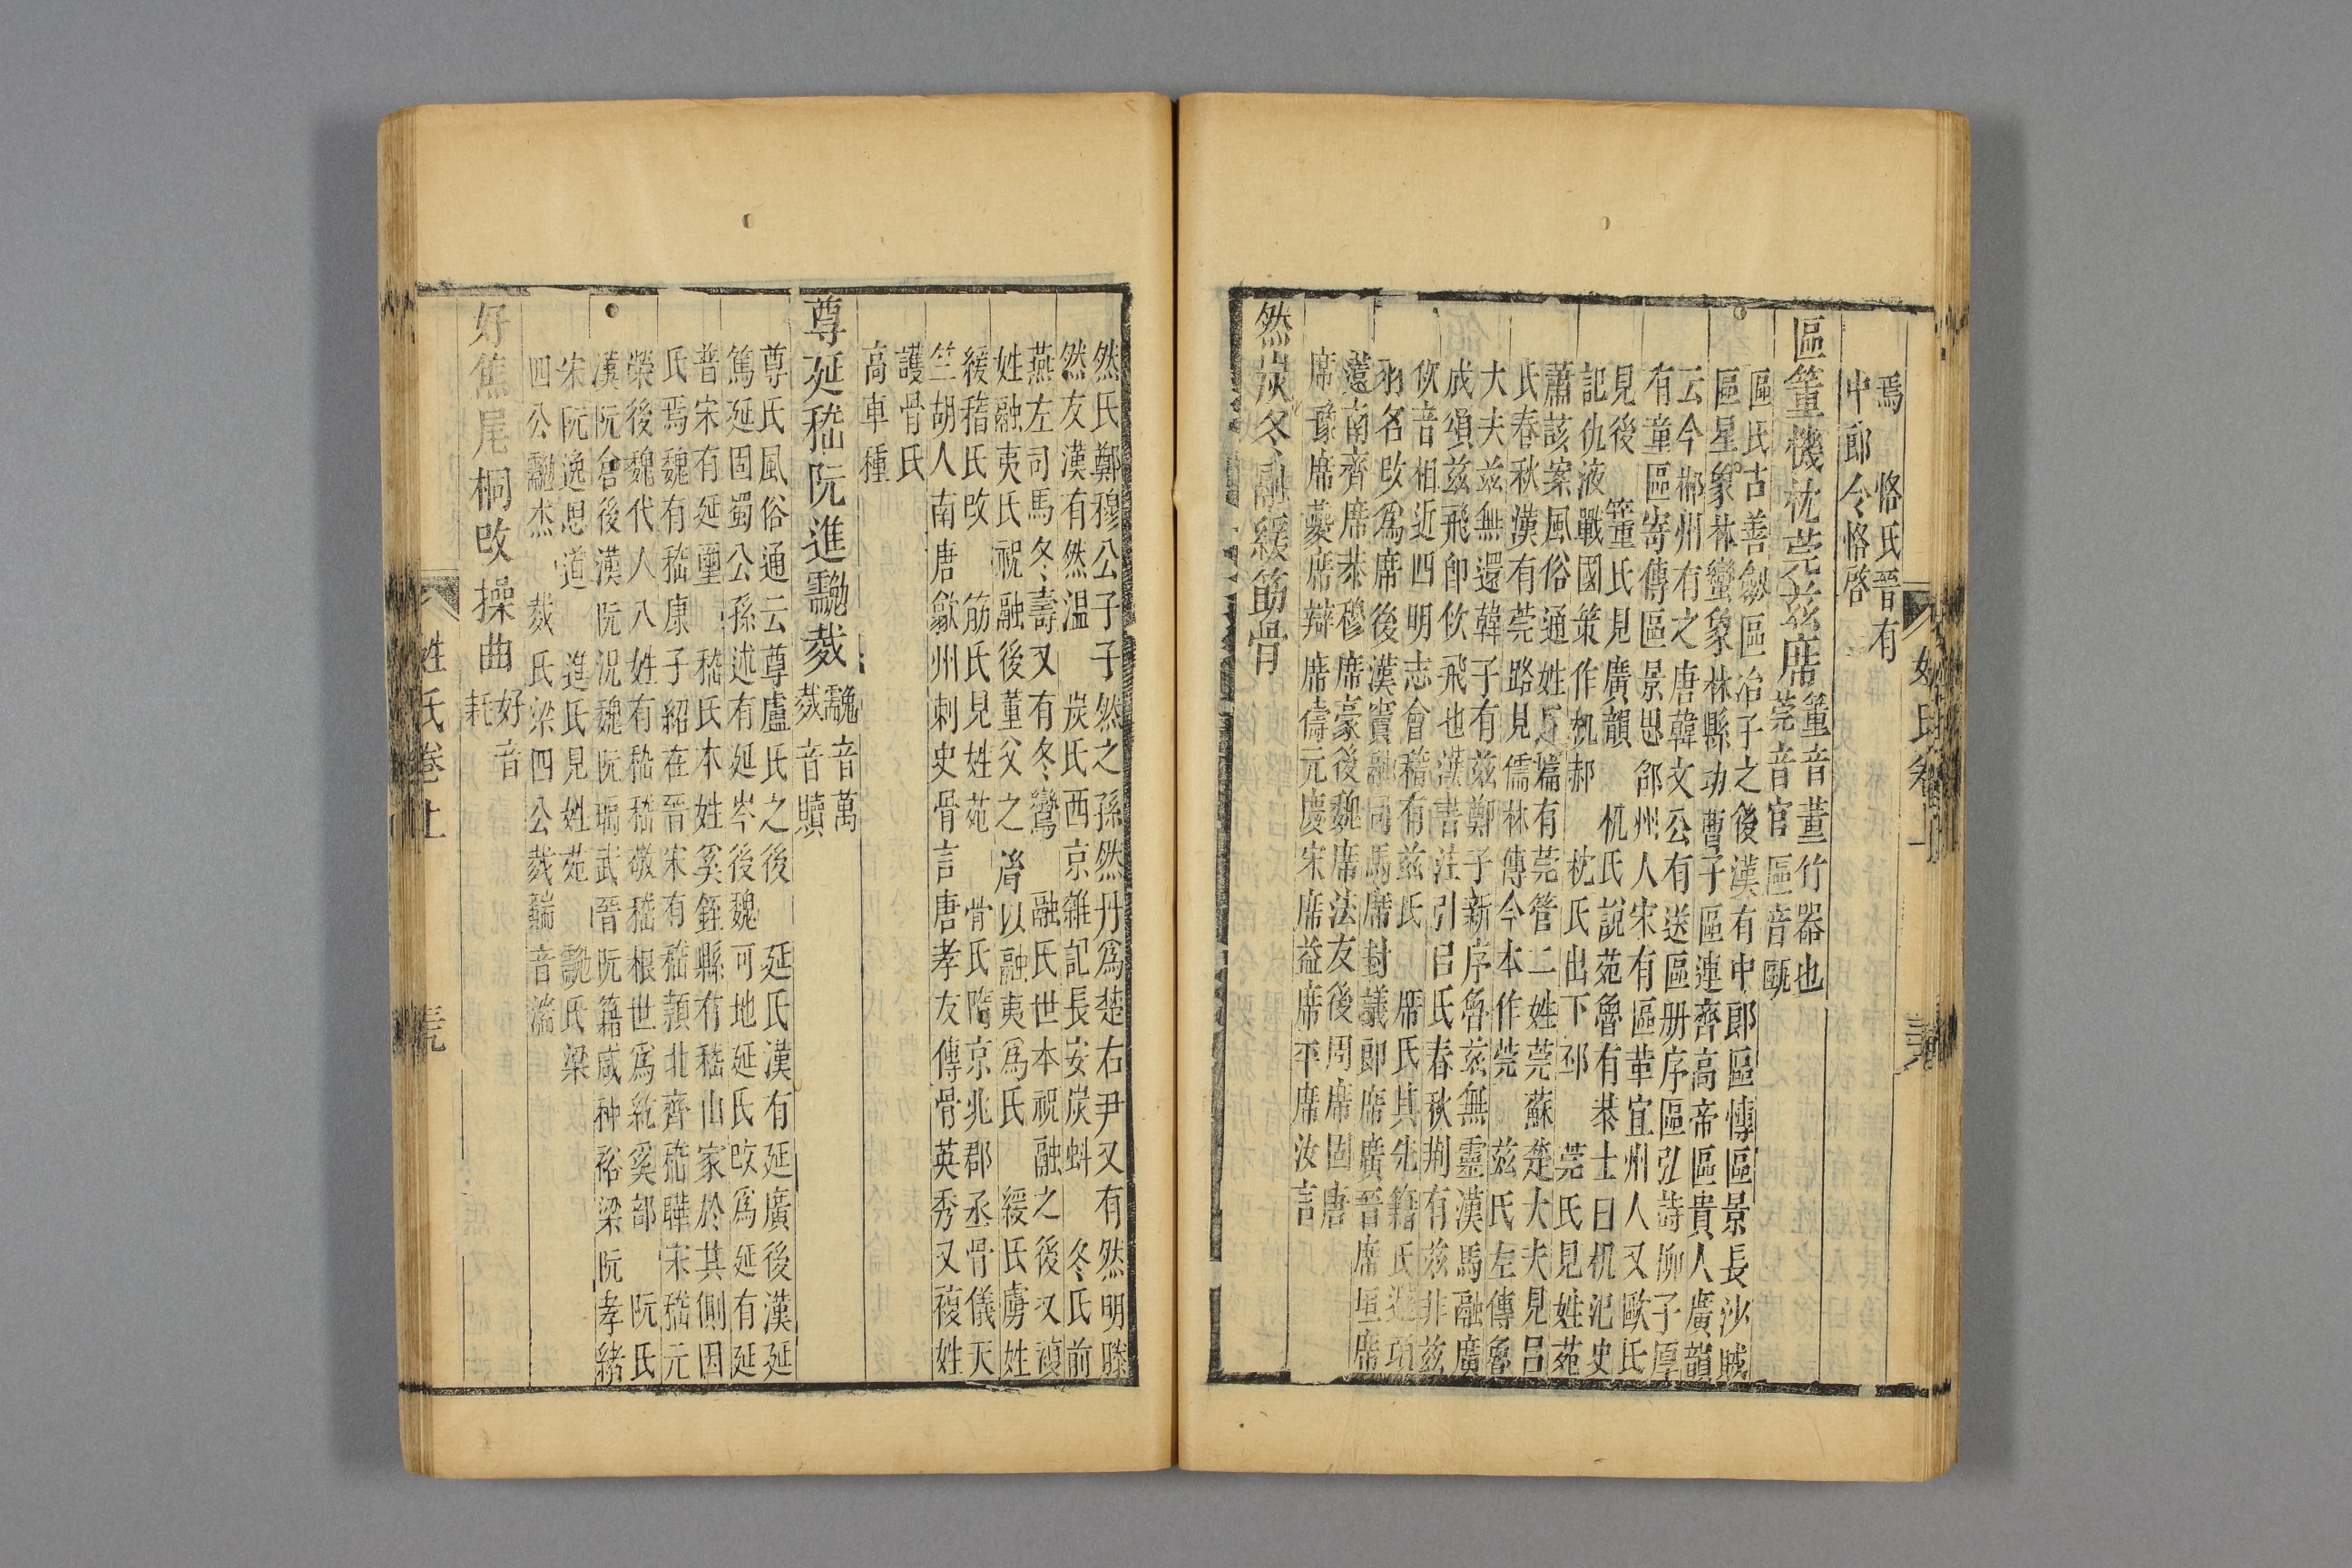 焉　恪氏晉有
中郎令恪啓
區篳機枕莞茲席
篳音蓽竹器也
莞音官　區音甌
區氏古善劒區冶子之後漢有中郎區慱區景長沙賊
區星象林蠻象林縣功曹子區連齊高帝區貴人廣韻
云今郴州有之唐韓文公有送區册序區弘詩柳子厚
有童區寄傳區景思郃州人宋有區革宜州人又歐氏
見後　篳氏見廣韻　机氏說苑魯有恭士曰机氾史
記仇液戰國策作机郝　枕氏出下邳　莞氏見姓苑
蕭該案風俗通姓氏篇有莞管二姓莞蘇楚大夫見呂
氏春秋漢有莞路見儒林傳今本作莞　茲氏左傳魯
大夫茲無還韓子有茲鄭子新序魯茲無靈漢馬融廣
成頌茲飛卽佽飛也漢書注引呂氏春秋荆有茲非茲
佽音相近四明志會稽有茲氏　席氏其先籍氏避項
羽名改爲席後漢竇融同馬席封議郎席廣晉席垣席
薳南齊席恭穆席豪後魏席法友後周席固唐
席豫席蘷席辯席儔元慶宋席益席平席汝言
然炭冬融緩筋骨
然氏鄭穆公子子然之孫然丹爲楚右尹又有然明滕
然友漢有然温　炭氏西京雜記長安炭蚪　冬氏前
燕左司馬冬壽又有冬鸞　融氏世本祝融之後又複
姓融夷氏祝融後董父之㣧以融夷爲氏　緩氏虜姓
緩稽氏改　筋氏見姓苑　骨氏隋京兆郡丞骨儀天
竺胡人南唐歙州刺史骨言唐孝友傳骨英秀又複姓
護骨氏
高車種
尊延嵇阮進䰟烖
䰟音萬
烖音贖
尊氏風俗通云尊盧氏之後　延氏漢有延廣後漢延
篤延固蜀公孫述有延岑後魏可地延氏改爲延有延
普宋有延壐　嵇氏本姓奚銍縣有嵇山家於其側因
氏焉魏有嵇康子紹在晉宋有嵇顥北齊嵇曄宋嵇元
榮後魏代人八姓有嵇嵇敬嵇根世爲紇奚部　阮氏
漢阮倉後漢阮況魏阮瑀武晉阮籍咸种裕梁阮孝緒
宋阮逸思道　進氏見姓苑　䰟氏梁
四公䰟杰　烖氏梁四公烖䵎音湍
好焦尾桐改操曲
好音
耗
姓氏卷上